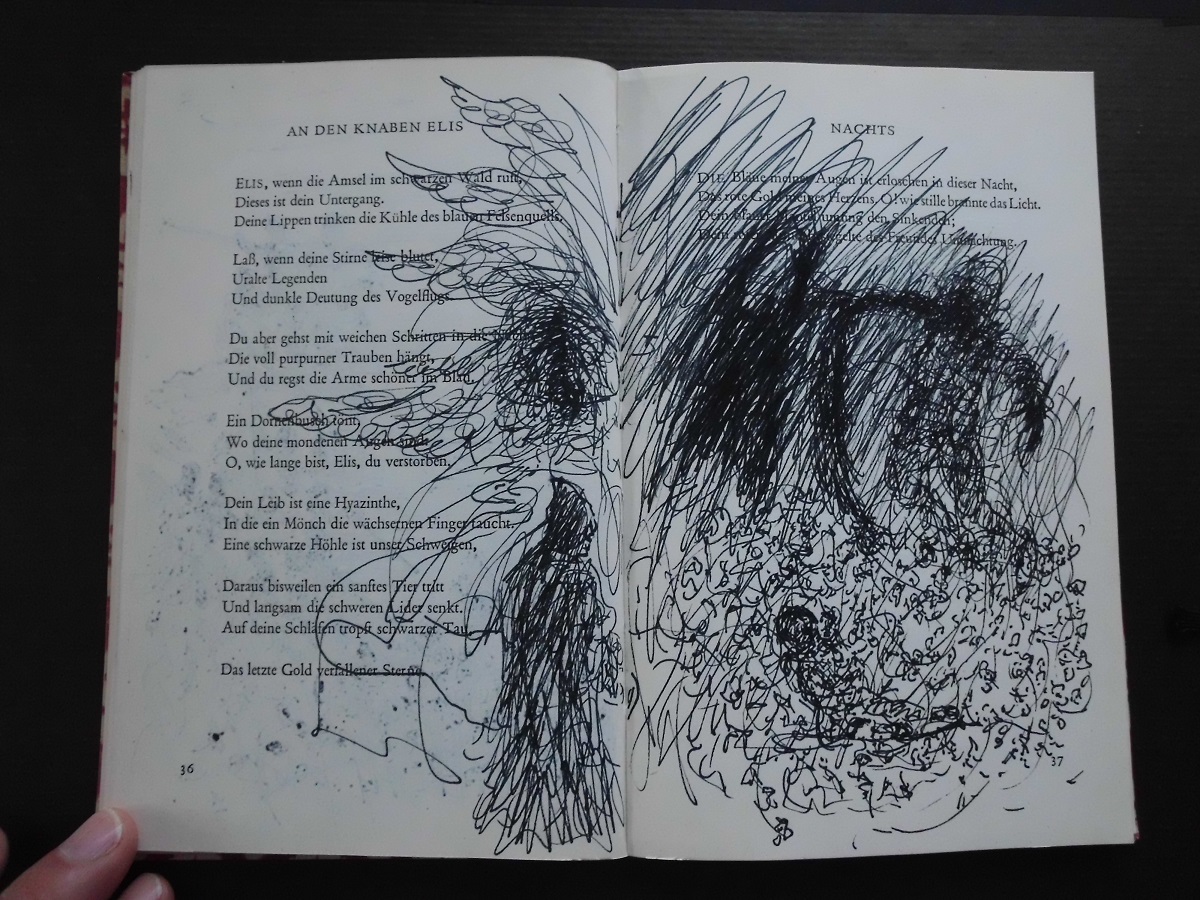 AN DEN KNABEN ELIS
ELIS, wenn die Amsel im schwarzen Wald ruft,
Dieses ist dein Untergang.
Deine Lippen trinken die Kühle des blauen Felsenquells.
Laß, wenn deine Stirne leise blutet,
Uralte Legenden
Und dunkle Deutung des Vogelflugs.
Du aber gehst mit weichen Schritten in die
Die voll purpurner Trauben hängt,
Und du regst die Arme schöner im Blau.
Ein Dornenbusch tönt,
Wo deine mondenen Augen sind.
O, wie lange bist, Elis, du verstorben.
Dein Leib ist eine Hyazinthe,
In die ein Mönch die wächsernen Finger taucht.
Eine schwarze Höhle ist unser Schweigen,
Daraus bisweilen ein sanftes Tier tritt
Und langsam die schweren Lider senkt.
Auf deine Schläfen tropft schwarzer Tau,
Das letzte Gold verfallener Sterne.
36
NACHTS
DIE Bläue meiner Augen ist erloschen in dieser Nacht,
Das rote Gold meines Herzens. O! wie stille brannte das Licht.
Dein blauer Mantel umfing den Sinkenden;
Dein roter des Freundes Umnachtung.
37